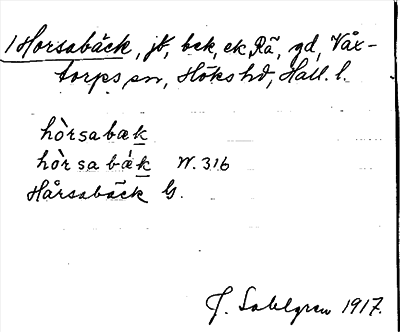 1 Horsabäck, jt, bck, ek, Rä, gd, Våx-
torps sn, Höks hd, Hall. l.
hòrsabæk
hòrsabæ̀k W. 316
Hårsabäck G.
J. Sahlgren 1917.